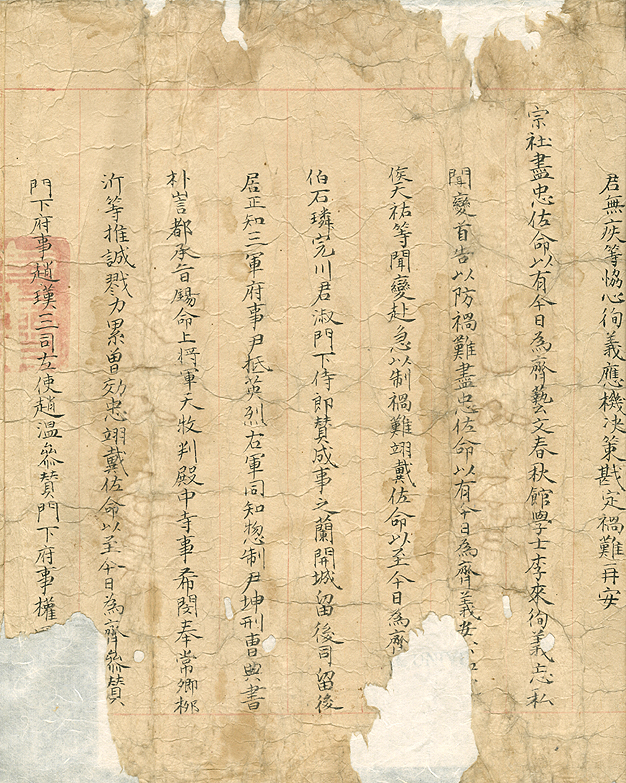 君無疾等恊心徇義應機决策戡定禍難再安
宗社盡忠佐命以有今日為齊藝文春秋館學士李來徇義忘私
聞變首告以防禍難盡忠佐命以有今日為齊義安
侯天祐等聞變赴急以制禍難翊戴佐命以至今日為齊
伯石璘完川君淑門下侍郎賛成事之蘭開城留後司留後
居正知三軍府事尹抵英烈右軍同知惣制尹坤刑曹典書
朴訔都承旨錫命上將軍天牧判殿中寺事希閔奉常卿柳
沂等推誠戮力累曾効忠翊戴佐命以至今日為齊叅賛
門下府事趙璞三司左使趙溫叅賛門下府事權